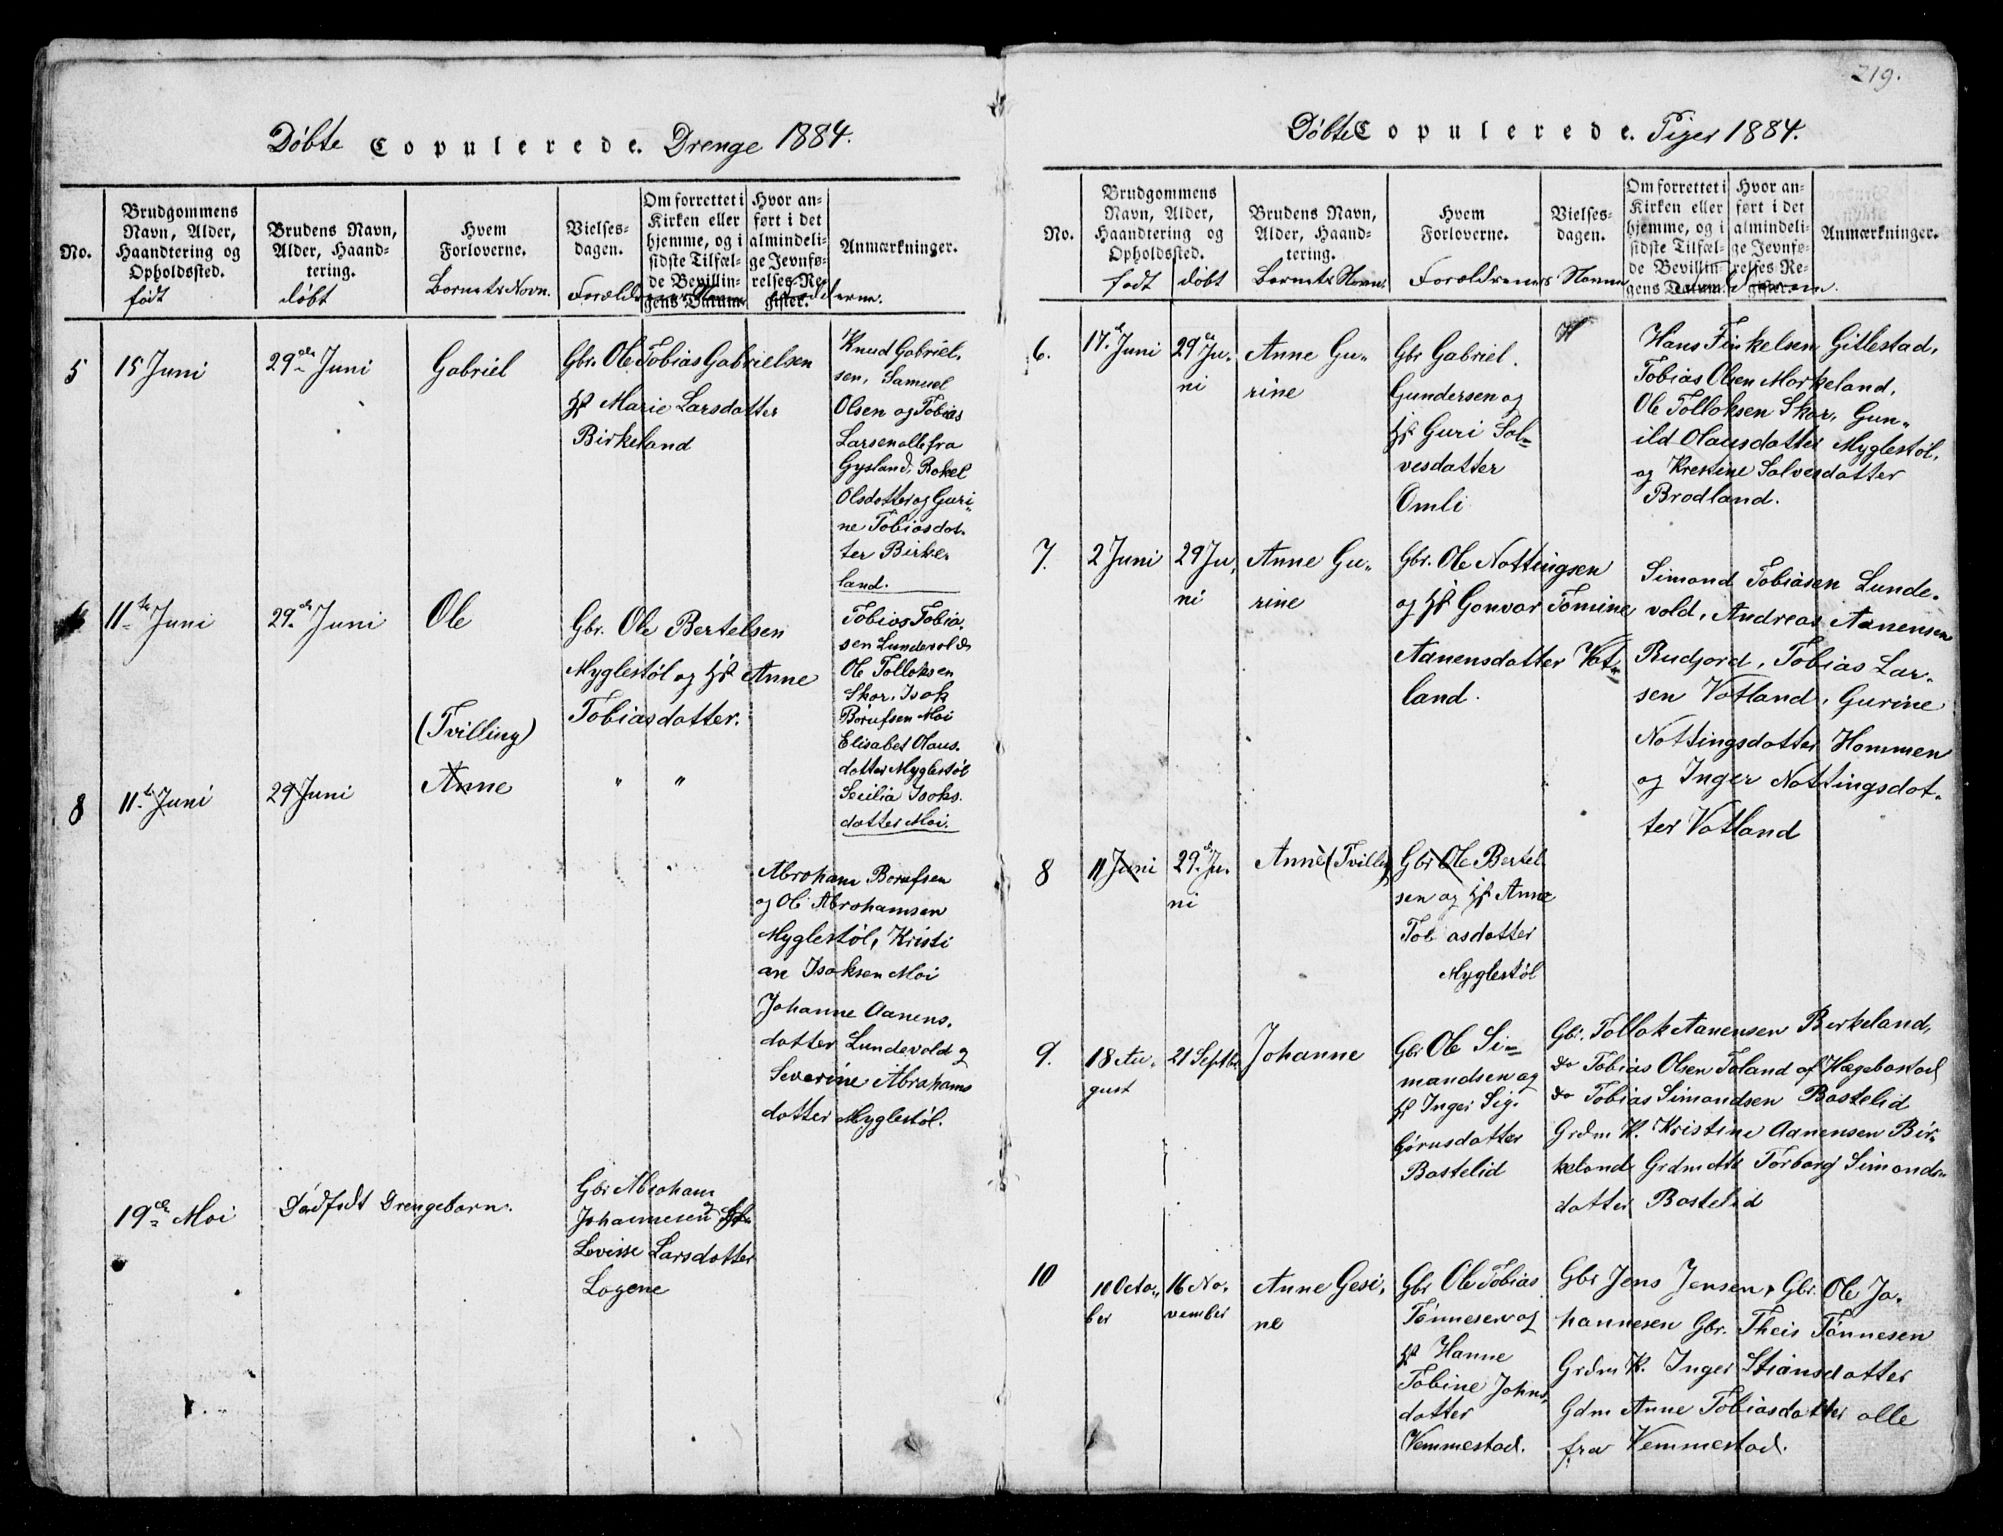 219.
Döbte Copulerede. Drenge 1884.
No.
Brudgommens
Navn, Alder,
Haandtering og
Opholdssted.
født
Brudens Navn,
Alder, Haand-
tering.
döbt
Hvem
Forloverne.
Bornets Navn.
Vielses-
dagen.
Om forrettet i
Kirken eller
hjemme, og i
sidste Tilfæl-
de Bevillin-
gens Datum.
Hvor an-
ført i det
almindeli-
ge Jevnfø-
relses-Re-
gister.
Anmærkninger.
Forældrenes Navne
Fadderne.
5
15 Juni
29de Juni
Gabriel
Gbr. Ole Tobias Gabrielsen
Marie Larsdatter
Birkeland
Knud Gabriel.
sen, Samuel
Olsen og Tobias
Larsen alle fra
Gysland, Rakel
Olsdatter og Guri-
ne Tobiasdat-
ter Birke-
land.
6
11te Juni
29de Juni
Ole
(Tvilling)
Gbr. Ole Bertelsen
Myglestöl og Anne
Tobiasdatter.
Tobias Tobia.
sen Lundevold
Ole Tolloksen
Skor, Isak
Börufsen Moi
Elisabet Olaus.
datter Myglestöl
Secilia Isaks.
datter Moi.
8
11te Juni
29 Juni
Anne
" "
Abraham Borufsen
og Ole Abrahamsen
Myglestöl, Kristi
an Isaksen Moi
Johanne Aanens.
datter Lundevold og
Severine Abrahams
datter Myglestöl.
19de Mai
Dødfødt Drengebarn.
Gbr Abraham
Johannesen og
Lovisse Larsdatter
Logene
Döbte Copulerede. Piger 1884.
No.
Brudgommens
Navn, Alder,
Haandtering og
Opholdssted.
födt döbt
Brudens Navn,
Alder, Haand-
tering.
Barnets Navn.
Hvem
Forloverne.
Forældrenes Navne
Vielses-
dagen.
Om forrettet i
Kirken eller
hjemme, og i
sidste Tilfæl-
de Bevillin-
gens Datum.
Hvor an-
ført i det
almindeli-
ge Jevnfø-
relses Re-
gister.
Anmærkninger.
6.
17de Juni
29de Ju-
ni
Anne Gu-
rine
Gbr Gabriel
Gundersen og
Guri Sal-
vesdatter
Omli
Hans Finkelsen Gitlestad,
Tobias Olsen Morkeland,
Ole Tolloksen Skor, Gun-
ild Olausdatter Myglestöl,
og Krestine Salvesdatter
Brodland.
7.
2 Juni
29 Ju-
ni
Anne Gu-
rine
Gbr. Ole Nottingsen
og Gonvor Tomine
Aanensdatter Vat-
land.
Simond Tobiasen Lunde-
vold, Andreas Aanensen
Rudjord, Tobias Lar-
sen Vatland, Gurine
Nottingsdatter Hommen
og Inger Nottingsdat-
ter Vatland
8
11 Juni
29de Ju-
ni
Anne (Tvilling)
Gbr Ole Bertel
sen og Anne
Tobiasdatter
Myglestöl
9.
18 Au-
gust
21 Septbr
Johanne
Gbr Ole Si-
mandsen og
Inger Sig-
björnsdatter
Bastelid
Gbr. Tollak Aanensen Birkeland,
do Tobias Olsen Toland af Hægebostad
do Tobias Simondsen Bastelid
Grdm K. Kristine Aanensen Bir-
keland Grdm dtt Torborg Simonds-
datter Bastelid
10
10 Octo-
ber
16 No-
vember
Anne Gesi-
ne
Gbr Ole Tobias
Tönnesen og
Hanne
Tobine Johns-
datter
Vemmestad.
Gbr Jens Jensen, Gbr. Ole Jo-
hannesen Gbr. Theis Tönnesen
Grdm K. Inger Stiansdatter
Gdm Anne Tobiasdatter alle
fra Vemmestad.